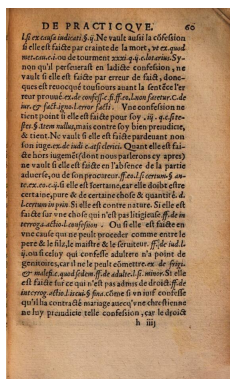 DE PRACTICQVE. 60
l.si ex causa indicati §.ij. Ne vault aussi la cõfession
si elle est faicte par crainte de la mort, vt ex.quod
met.cau.c.i. ou de tourment xxxi.q.ij.c.lotarius. Sy-
non qu'il perseuerast en ladicte confession, ne
vault si elle est faicte par erreur de faict, donc-
ques est reuocqué tousiours auant la sentẽce l'er
reur prouué. ex. de confess.c.fi.ff.eo.l.non fatetur. C. de
iur. & fact.igno.l.error facti. Vne confession ne
tient point si elle est faicte pour soy, iij.q.c.si te-
stes §. item nullus, mais contre soy bien preiudicie,
& tient. Ne vault si elle est faicte pardeuant non
son iuge. ex. de iudi c. at si clerici. Quant elle est fai-
cte hors iugemẽt (dont nous parlerons cy apres)
ne vault si elle est faicte en l'absence de la partie
aduerse, ou de son procureur. ff.eo.l.si certum §. an-
te. ex.eo.c.ij. Si elle est incertaine, car elle doibt estre
certaine, pure & de certaine chose & quantité. d.
l.certum in prin. Si elle est contre nature. Si elle est
faicte sur vne chose qui n'est pas litigieuse. ff. de in
terroga. actio. l. confessio. Ou si elle est faicte en
vne cause qui ne peult proceder comme entre le
pere & le filz, le maistre & le seruiteur. ff. de iud. l.
ij, ou si celuy qui confesse adultere n'a point de
genitoires, car il ne le peult cõmettre. ex de frigi.
& malefi. c. quod sedem. ff. de adulte. l. si minor. Si elle
est faicte sur ce qui n'est pas admis de droict. ff. de
interrog. actio. l. si cui. §. fina. cõme si vn iuif confesse
qu'il ha contracté mariage auecq' vne chrestienne
ne luy preiudicie telle confession, car le droict
h iiij